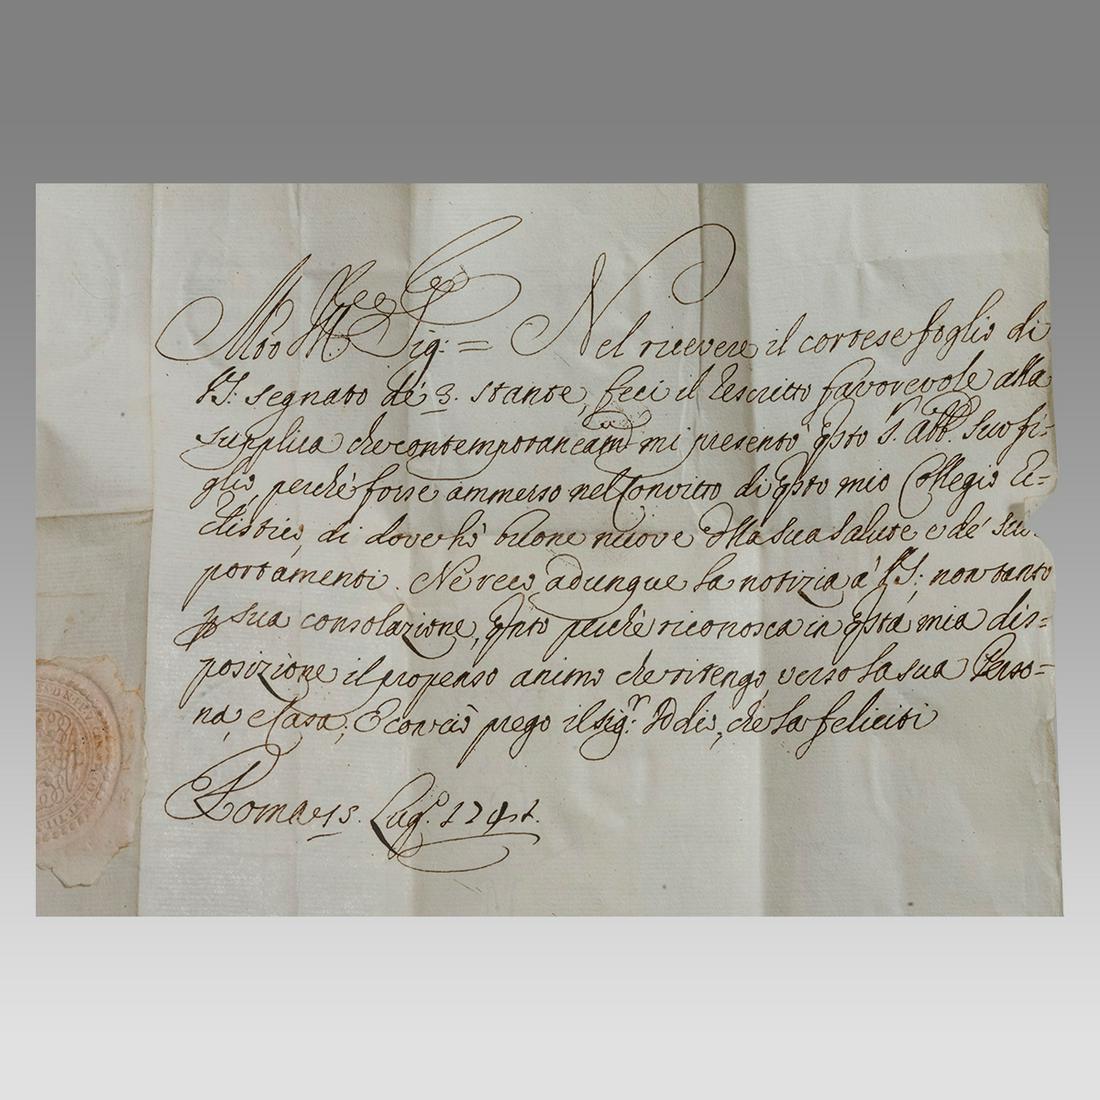 Mto Ill.re Sig.re = Nel ricevere il cortese foglio di
VS: segnato de' 3. stante, feci il rescritto favorevole alla
supplica che contemporaneam.te mi presentò q̃sto S.r Abb.e suo fi-
glio, perchè fosse ammesso nel Convitto di q̃sto mio Collegio
di dover buone nuove della sua salute e de' suoi
portamenti. Ne reco adunque la notizia à VS; non tanto
p sua consolazione, q̃nto perchè riconosca in q̃sta mia dis=
posizione il propenso animo che ritengo verso la sua Perso=
na, e Casa; E con ciò prego il Sig.r Iddio, che la feliciti
Roma 15. Lug.o 1741.